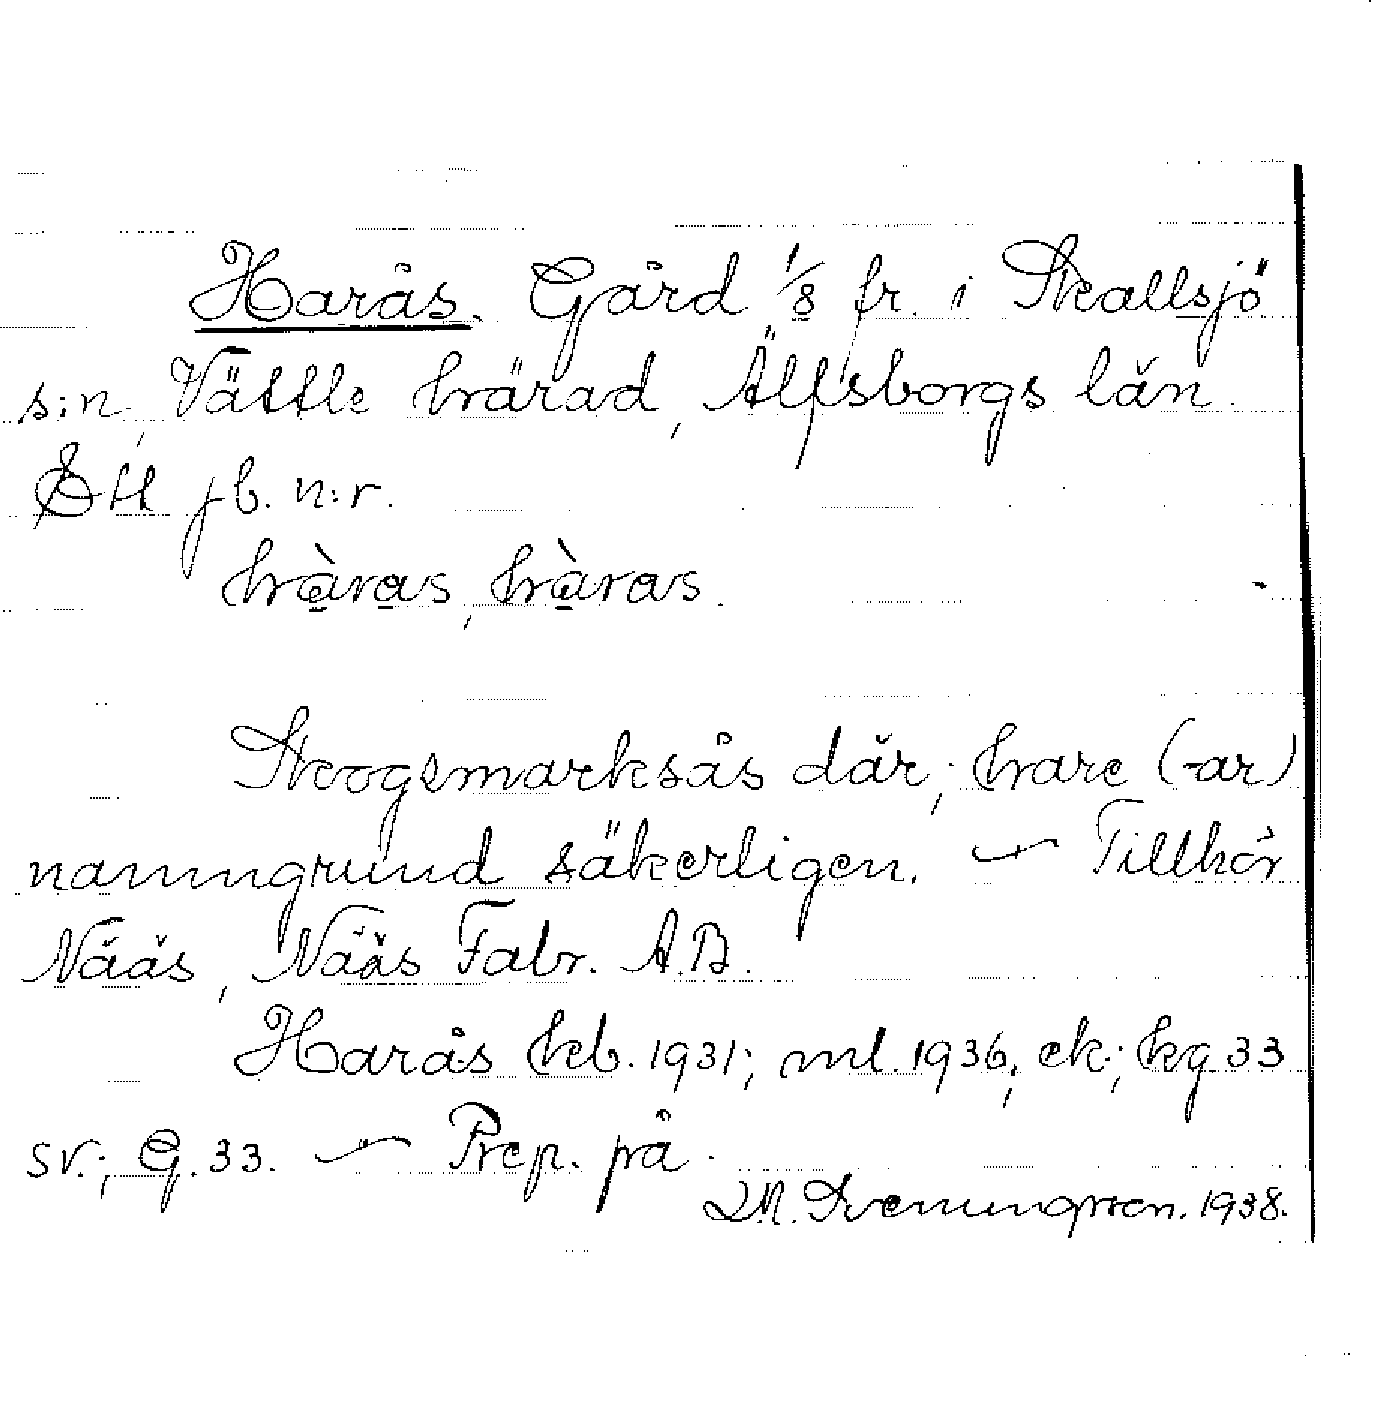 Harås. Gård 1/8 fr. i Skallsjö
s:n, Vättle härad, Älfsborgs län.
Ett jb. n:r.
hàras, hàras.
Skogsmarksås där; hare (-ar)
namngrund säkerligen. – Tillhör
Nääs, Nääs Fabr. A.B.
Harås hcb. 1931; ml. 1936; ek.; kg 33
sv.; G. 33. – Prep. på.
1938.